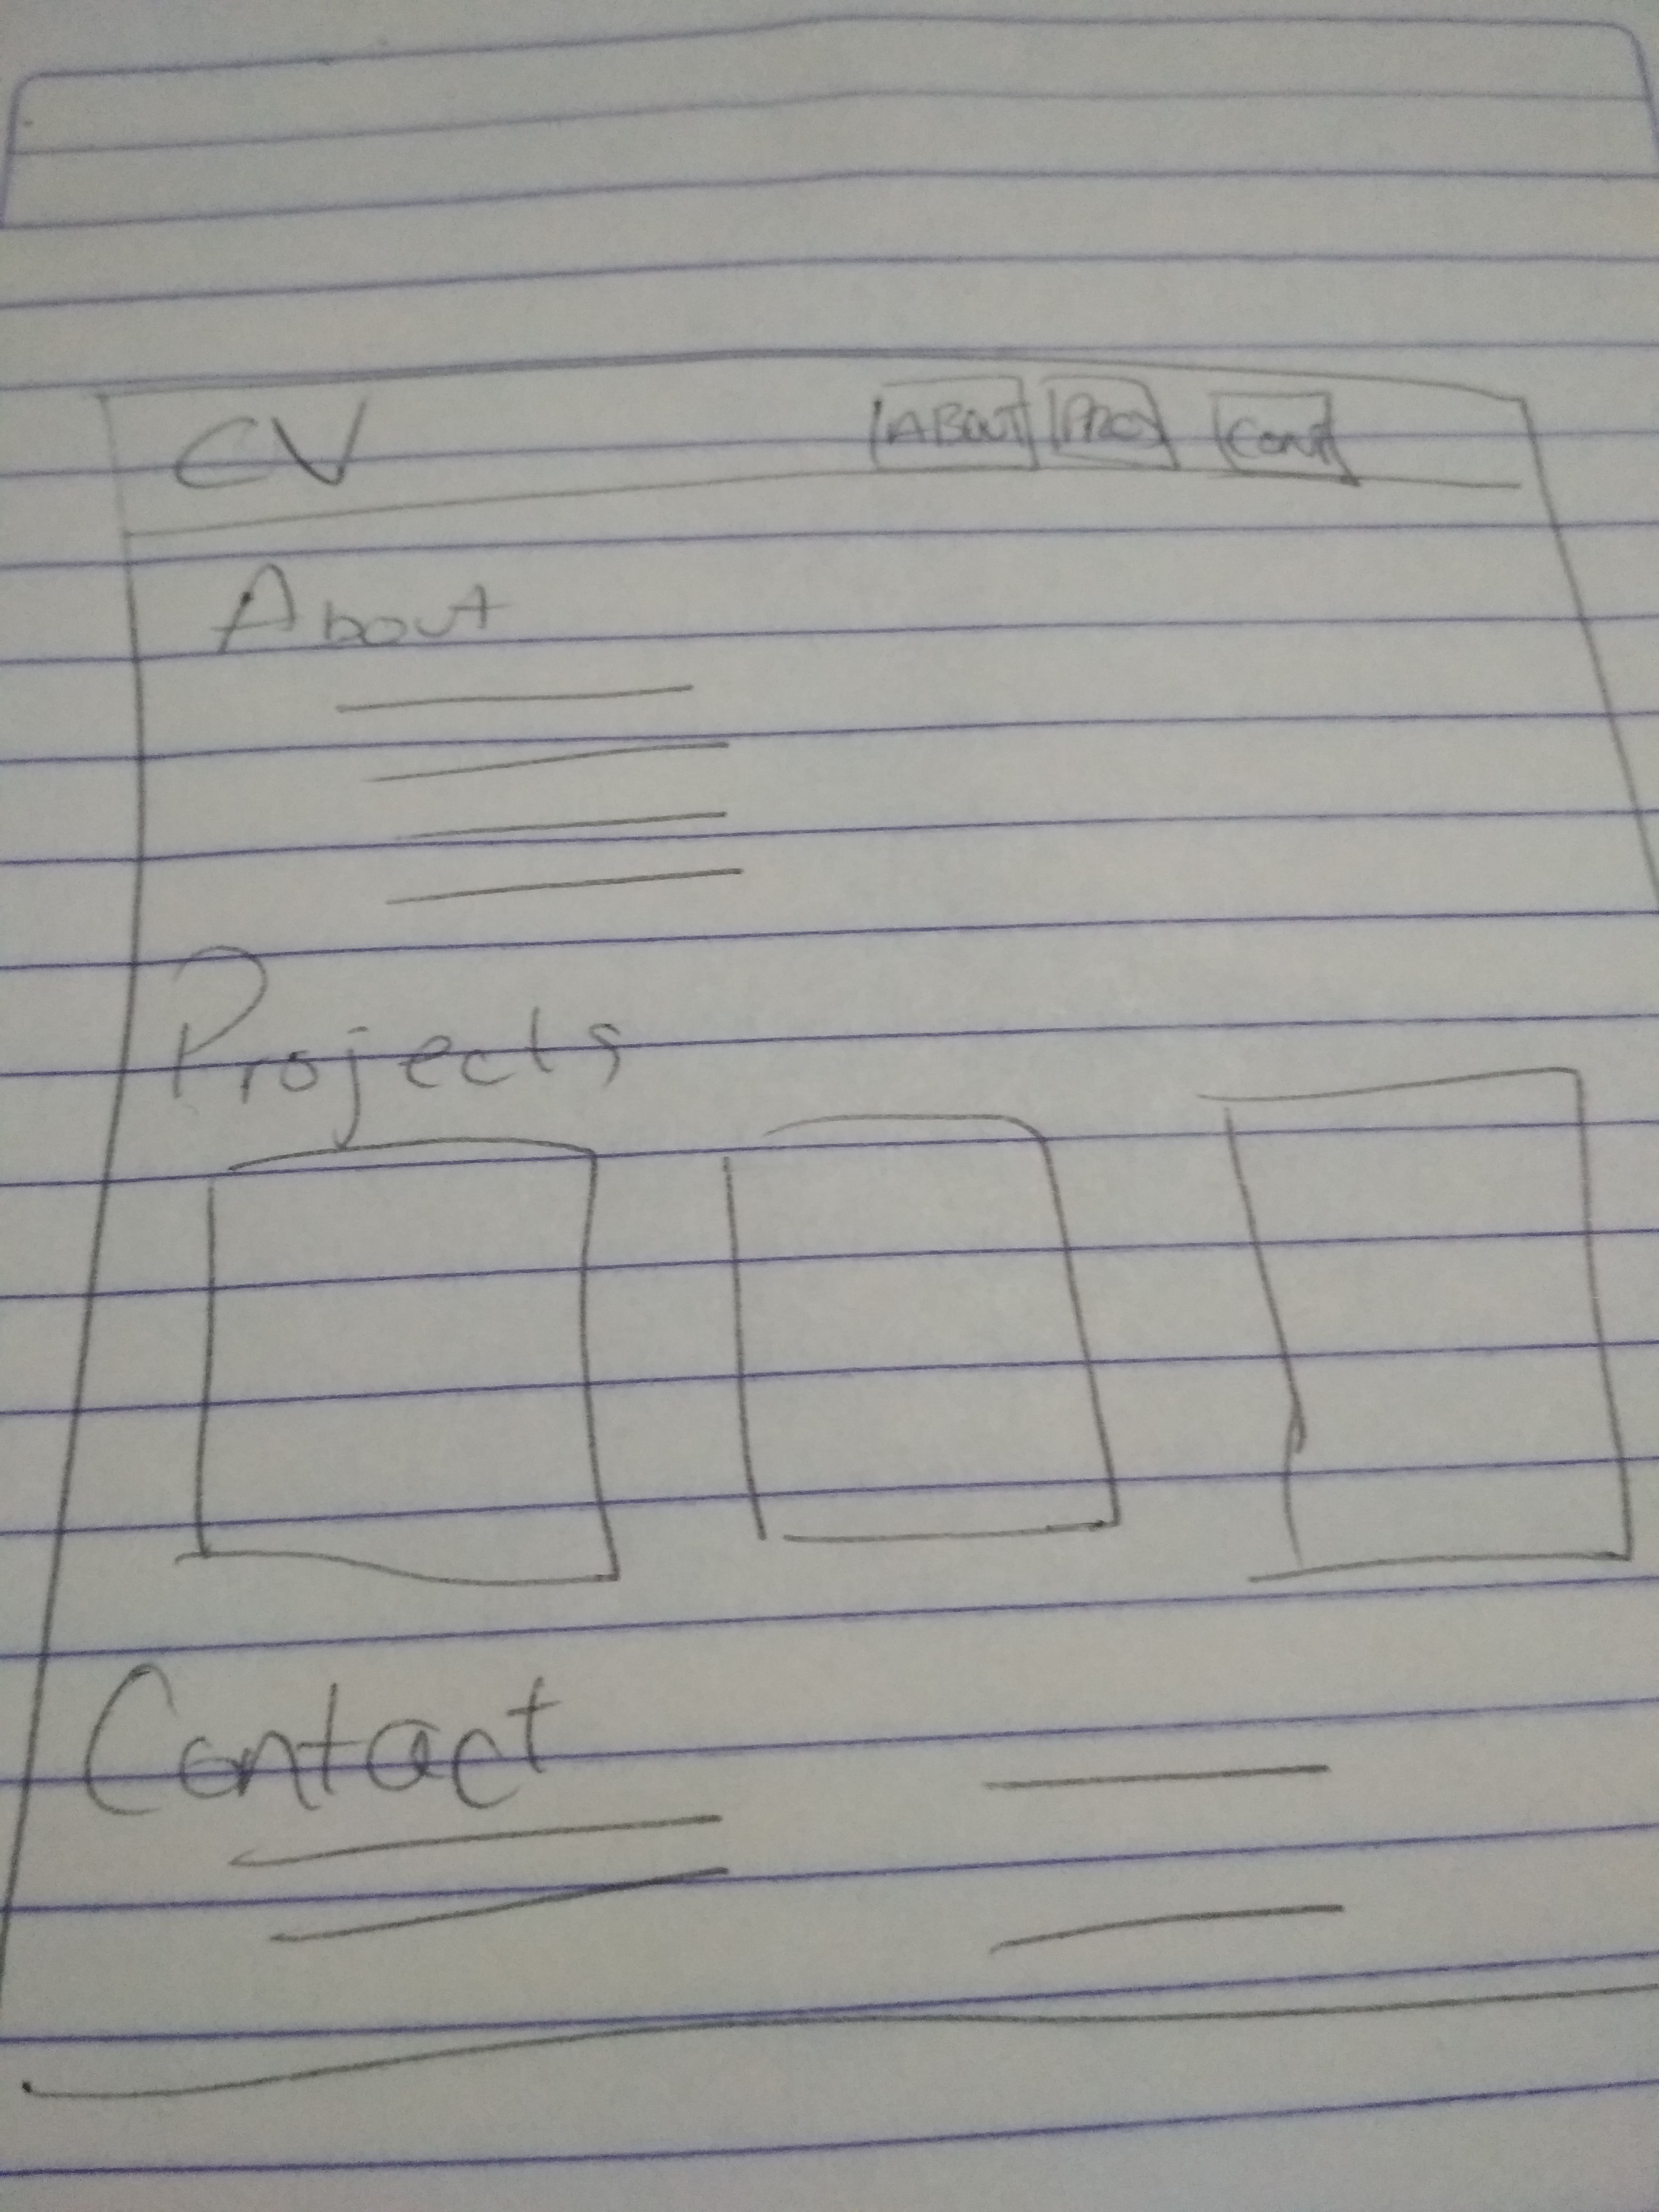 CV ABOUT PROJ CONT
About
Projects
Contact